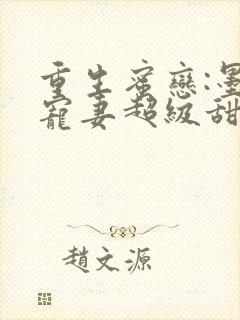 重生蜜戀:墨
寵妻超級甜
趙文源